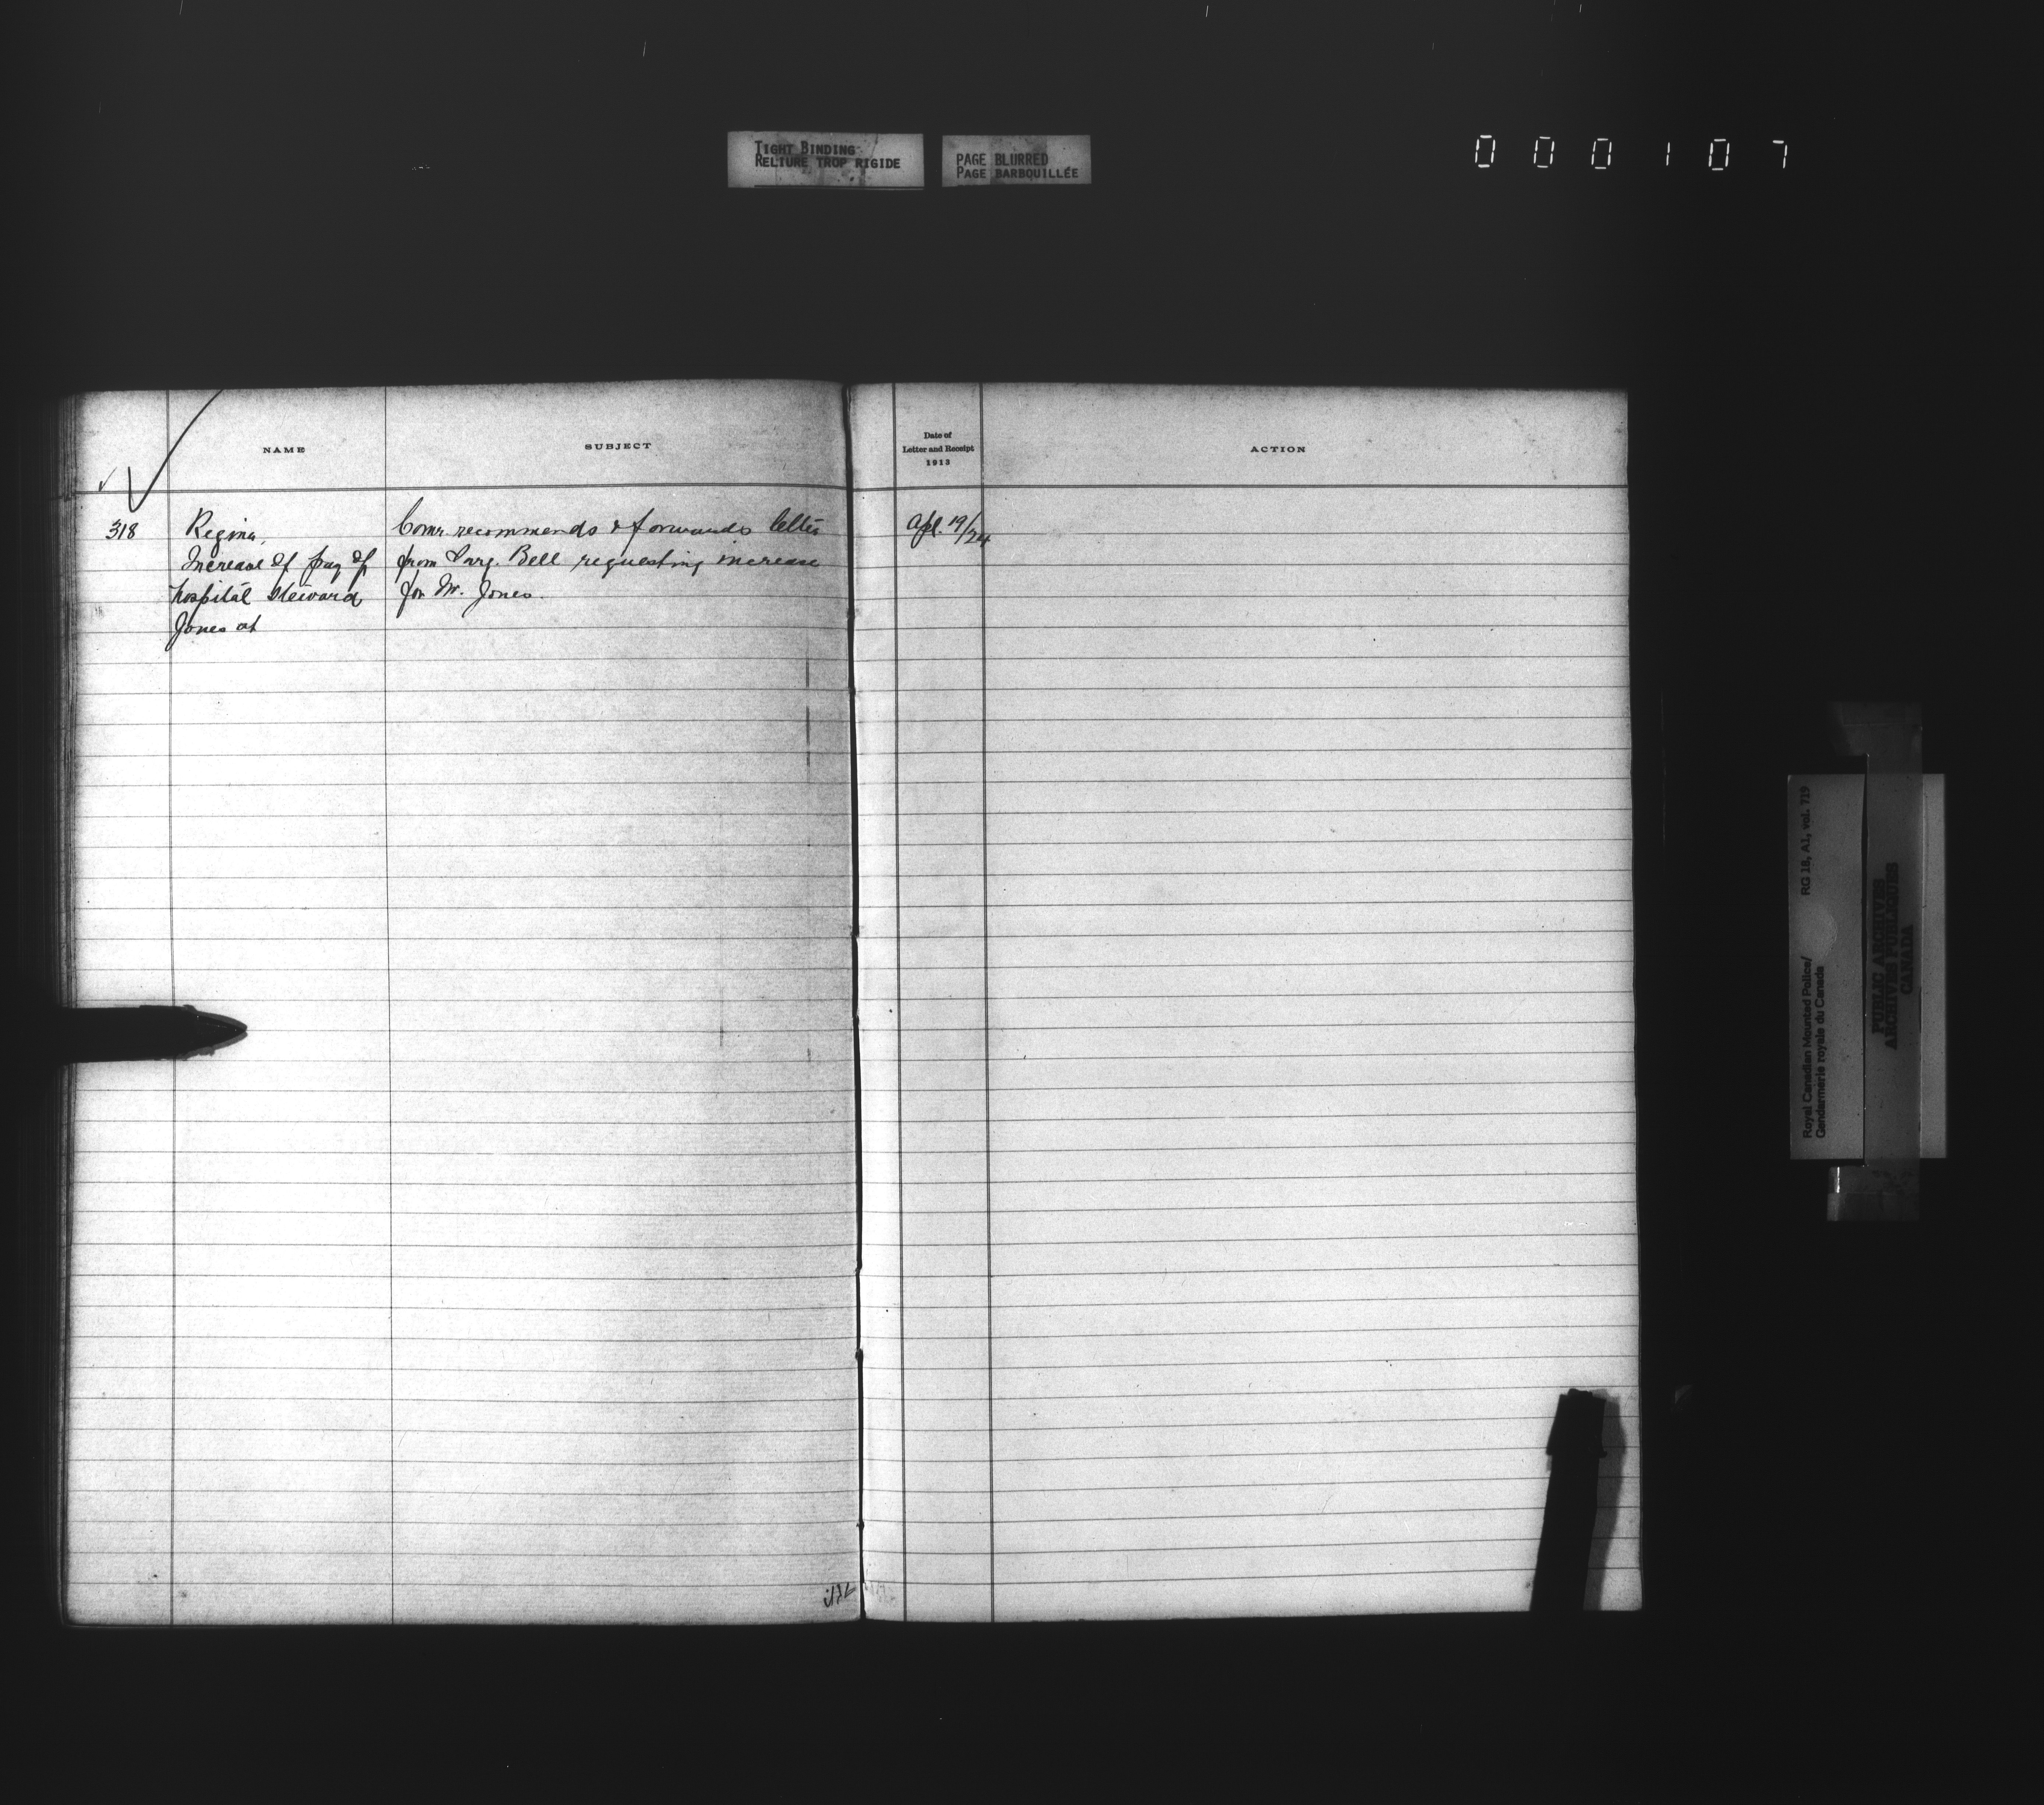 TIGHT BINDING
RELIURE TROP RIGIDE
PAGE BLURRED
PAGE BARBOUILLÉE
000107
NAME
SUBJECT
Date of
Letter and Receipt
1913
ACTION
318
Regina,
Increase of pay of
hospital steward
Jones at
Comr. recommends & forwards letter
from Surg. Bell requesting increase
for Mr. Jones.
Apl. 19/24
Royal Canadian Mounted Police/
Gendarmerie royale du Canada
RG 18, A1, vol. 719
PUBLIC ARCHIVES
ARCHIVES PUBLIQUES
CANADA